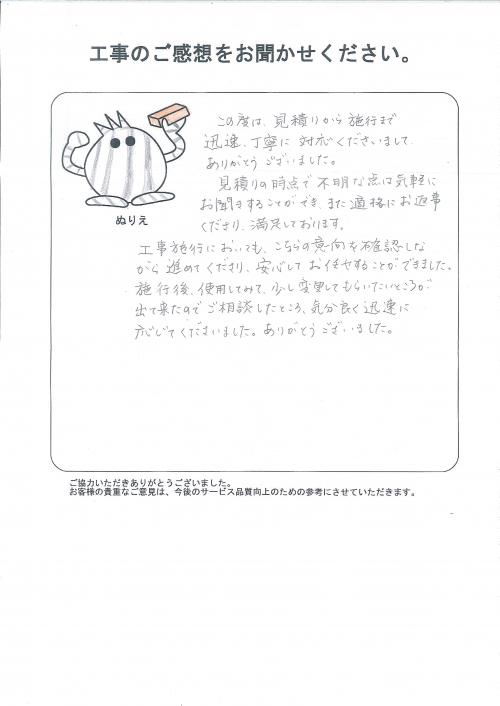 工事のご感想をお聞かせください。
この度は、見積りから施行まで
迅速、丁寧に対応くださいまして
ありがとうございました。
見積りの時点で不明な点は気軽に
お聞きすることができ、また適格にお返事
くださり、満足しております。
ぬりえ
工事施行においても、こちらの意向を確認しな
がら進めてくださり、安心してお任せすることができました。
施行後、使用してみて、少し変更してもらいたいところが
出て来たのでご相談したところ、気分良く迅速に
応じてくださいました。ありがとうございました。
ご協力いただきありがとうございました。
お客様の貴重なご意見は、今後のサービス品質向上のための参考にさせていただきます。